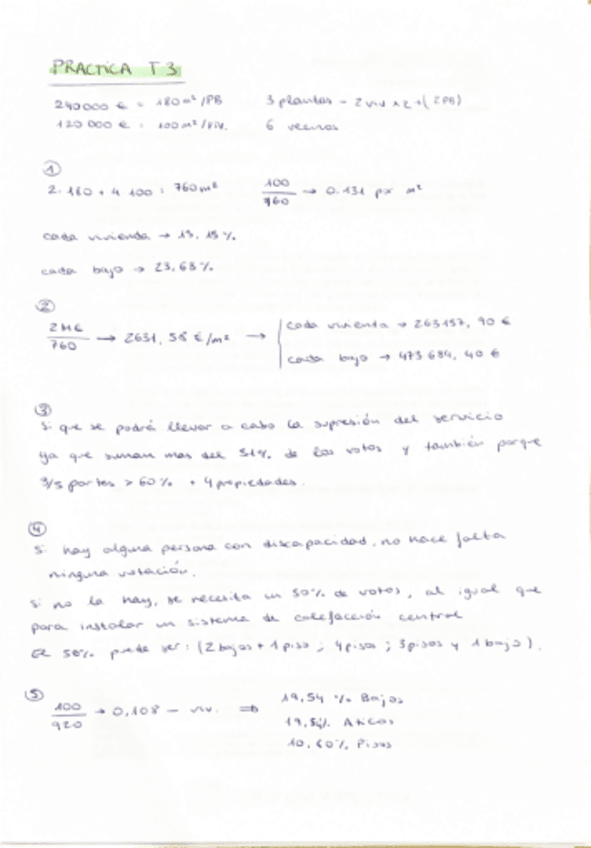 PRACTICA T3
240000 € = 180 m²/PB
3 plantas - 2 viv x 2 + (2PB)
120 000 € = 100 m²/viv.
6 vecinos
①
2·180 + 4·100 = 760 m²
100/760 → 0.131 por m²
cada vivienda → 13,15 %
cada bajo → 23,68 %
②
2M€/760 → 2631,58 €/m² →
cada vivienda → 263157,90 €
cada bajo → 473 684,40 €
③
Si que se podrá llevar a cabo la supresión del servicio
ya que suman mas del 51% de los votos y también porque
3/5 partes > 60% + 4 propiedades.
④
Si hay alguna persona con discapacidad, no hace falta
ninguna votación.
Si no la hay, se necesita un 50% de votos, al igual que
para instalar un sistema de calefacción central
El 50% puede ser: (2 bajos + 1 piso ; 4 pisos ; 3 pisos y 1 bajo).
⑤
100/920 → 0,108 - viv. ⇒
19,54 % Bajos
19,54% Aticos
10,60% Pisos